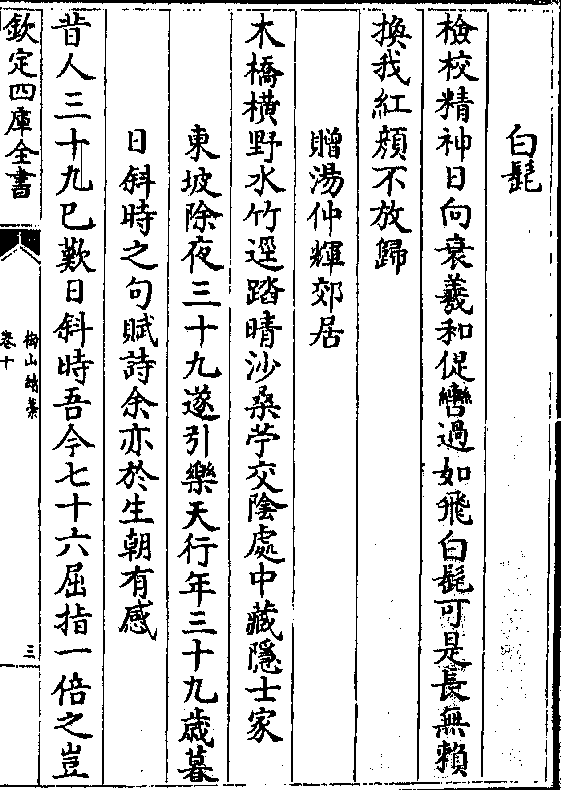 白髭
檢校精神日向衰羲和促轡過如飛白髭可是長無賴
換我紅頰不放歸
贈湯仲輝郊居
木橋橫野水竹逕踏晴沙桑苧交陰處中藏隱士家
東坡除夜三十九遂引樂天行年三十九歲暮
日斜時之句賦詩余亦於生朝有感
昔人三十九已歎日斜時吾今七十六屈指一倍之豈
欽定四庫全書
梅山續藁
卷十
三